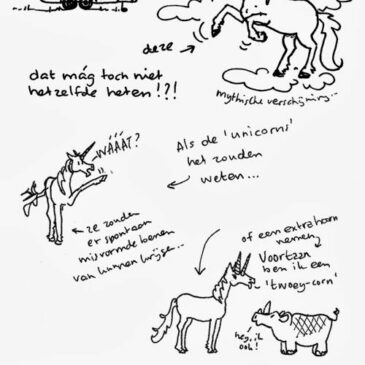 deze
dat mág toch niet
hetzelfde heten!?!
mythische verschijning...
WÁÁÁT?
Als de 'unicorns'
het zouden
weten...
ze zouden
er spontaan
misvormde benen
van kunnen krijgen...
of een extra hoorn
nemen
Voortaan
ben ik een
'twoey-corn'
hey, ik
ook!